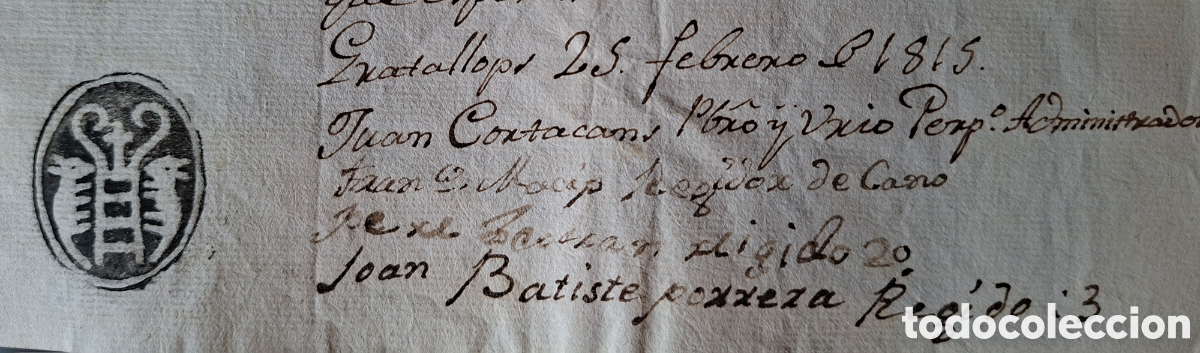 Gratallops 25. febrero d 1815.
Juan Cortacans Pbrõ y Vrio Perp.º Administrador
Fran.co Macip Regidor de Cano
Pere Bertran rligido 20
Joan Batiste porrera Regido i 3
todocoleccion